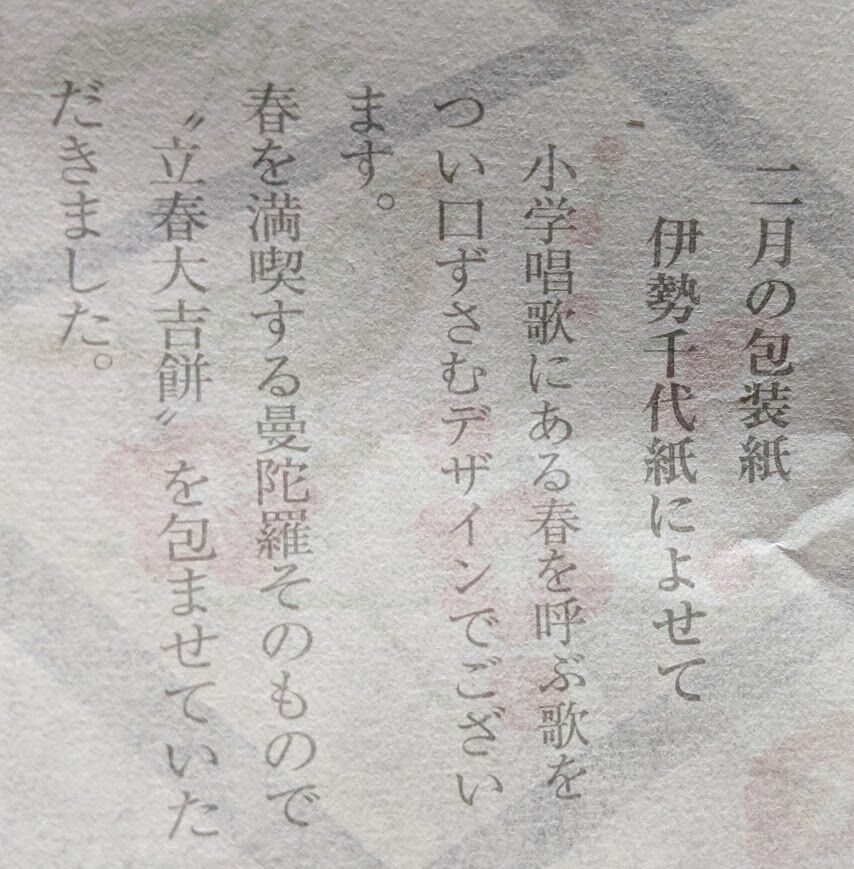 二月の包装紙
伊勢千代紙によせて
小学唱歌にある春を呼ぶ歌を
つい口ずさむデザインでござい
ます。
春を満喫する曼陀羅そのもので
〝立春大吉餅〟を包ませていた
だきました。